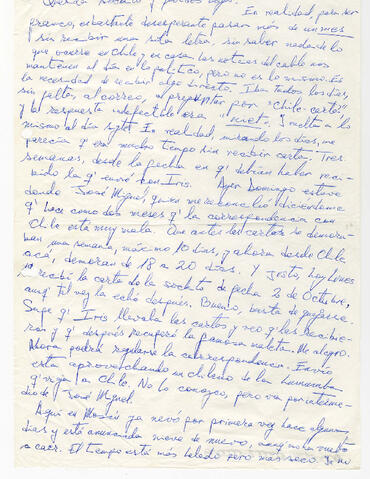 Querida Rosario y
En realidad, para ser
franco, es bastante desesperante pasar más de un mes
sin recibir una sola letra, sin saber nada de lo
que ocurre en Chile, en casa. Las noticias del cable nos
mantienen al día en lo político, pero no es lo mismo. Es
la necesidad de recibir algo directo. Iba todos los días,
sin falta, al correo, a preguntar por "Chile: carta"
y la respuesta indefectible era "niet". Y vuelta a lo
mismo al día sgte. En realidad, mirando los días, me
parecía q' era mucho tiempo sin recibir carta. Tres
semanas, desde la fecha en q' debían haber reci-
bido la q' envié con Iris. Ayer Domingo estuve
donde José Miguel, quien me consoló diciéndome
q' hace como dos meses q' la correspondencia con
Chile está muy mala. Que antes las cartas se demora-
ban una semana, máximo 10 días, y ahora desde Chile
acá, demoran de 18 a 20 días. Y justo, hoy Lunes
recibí la carta de la de fecha 2 de Octubre,
aunq' tal vez la echó después. Bueno, basta de quejarse.
Supe q' Iris llevaba las cartas y veo q' las recibie-
ron y q' después recuperó la famosa maleta. Me alegro.
Ahora podrá regularse la correspondencia. Envío
esta aprovechando un chileno de la Lumumba
q' viaja a Chile. No lo conozco, pero va por interme-
dio de José Miguel.
Aquí en Moscú ya nevó por primera vez hace algunos
días y está anunciada nieve de nuevo, aunq' no ha vuelto
a caer. El tiempo está más helado pero más seco. Ya no